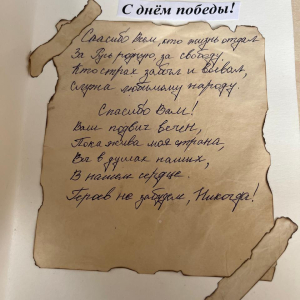 С днём победы!
Спасибо Вам, кто жизнь отдал
За Русь родную, за свободу
Кто страх забыл и воевал,
Служа любимому народу.
Спасибо Вам!
Ваш подвиг вечен,
Пока жива моя страна,
Вы в душах наших,
В нашем сердце.
Героев не забудем, Никогда!